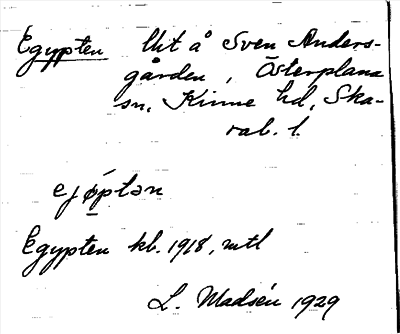 Egypten Utg å Sven Anders-
gården, Österplana
sn, Kinne hd, Ska-
rab. l.
ejøptən
Egypten kb. 1918, mtl
L. Madsén 1929